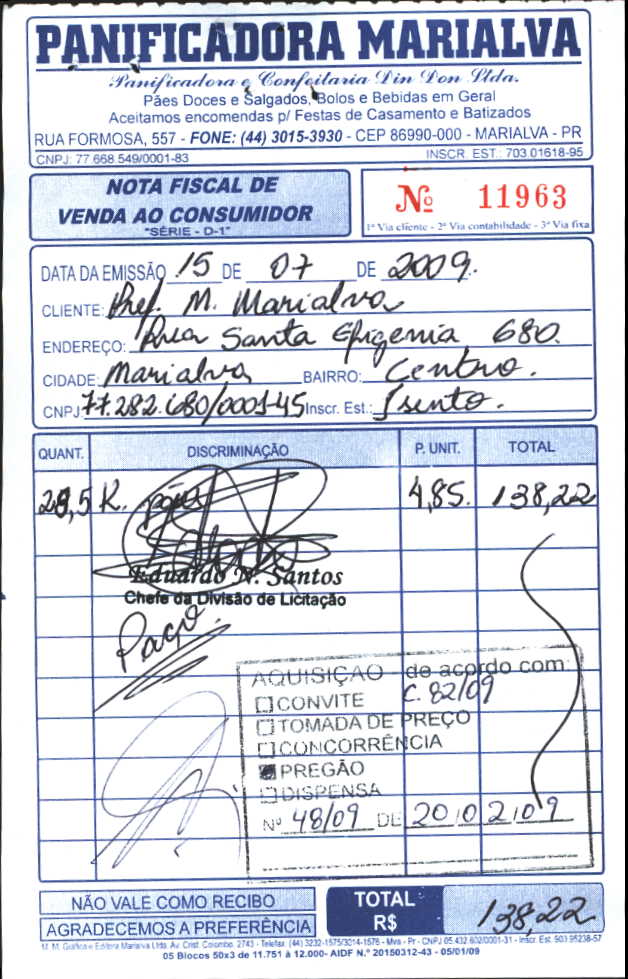 PANIFICADORA MARIALVA
Panificadora e Confeitaria Din Don Ltda.
Pães Doces e Salgados, Bolos e Bebidas em Geral
Aceitamos encomendas p/ Festas de Casamento e Batizados
RUA FORMOSA, 557 - FONE: (44) 3015-3930 - CEP 86990-000 - MARIALVA - PR
CNPJ: 77.668.549/0001-83 INSCR. EST.: 703.01618-95
NOTA FISCAL DE
VENDA AO CONSUMIDOR
"SÉRIE - D-1"
Nº 11963
1ª Via cliente - 2ª Via contabilidade - 3ª Via fixa
DATA DA EMISSÃO 15 DE 07 DE 2009.
CLIENTE: Pref. M. Marialva
ENDEREÇO: Rua Santa Efigenia, 680.
CIDADE: Marialva BAIRRO: Centro.
CNPJ: 77.282.680/0001-45 Inscr. Est.: Isento.
QUANT. DISCRIMINAÇÃO P. UNIT. TOTAL
28,5 K. pães 4,85. 138,22
Eduardo N. Santos
Chefe da Divisão de Licitação
Paço
AQUISIÇÃO de acordo com:
C. 82/09
CONVITE
TOMADA DE PREÇO
CONCORRÊNCIA
PREGÃO
DISPENSA
Nº 48/09 DE 20/02/09
NÃO VALE COMO RECIBO
AGRADECEMOS A PREFERÊNCIA
TOTAL
R$ 138,22
M. M. Gráfica e Editora Marialva Ltda. Av. Crist. Colombo, 2743 - Telefax: (44) 3232-1575/3014-1576 - Mva - Pr - CNPJ 05.432.602/0001-31 - Inscr. Est. 903.95238-57
05 Blocos 50x3 de 11.751 à 12.000- AIDF N.º 20150312-43 - 05/01/09